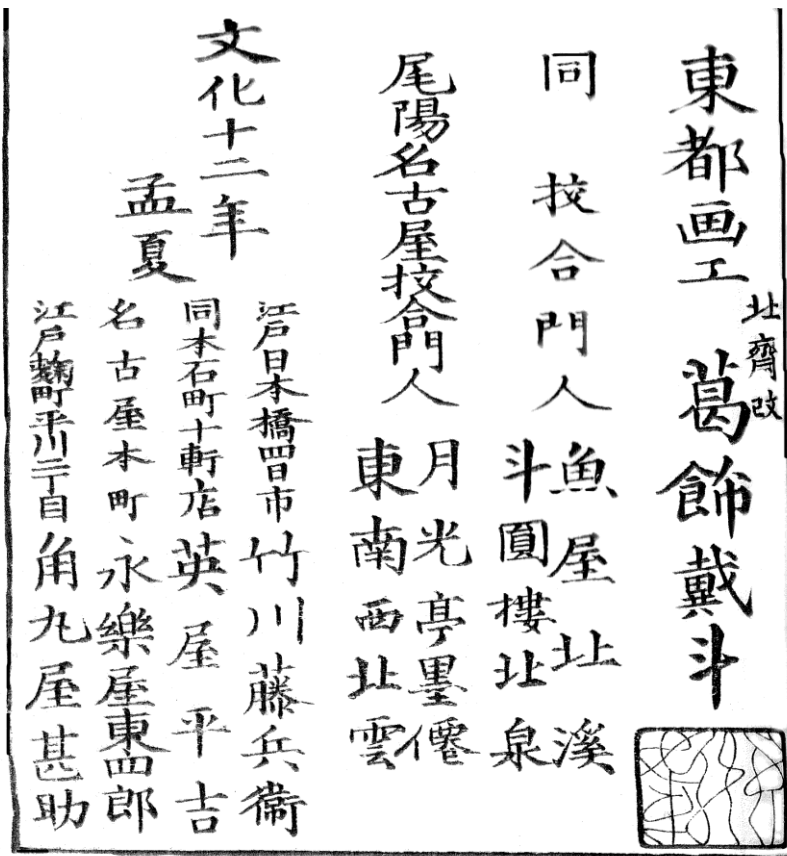 東都画工
北齋改
葛飾戴斗
同 挍合門人
魚屋北溪
斗圓樓北泉
尾陽名古屋挍合門人
月光亭墨僊
東南西北雲
文化十二年
孟夏
江戸日本橋四日市 竹川藤兵衞
同本石町十軒店 英屋平吉
名古屋本町 永樂屋東四郎
江戸麹町平川二丁目 角丸屋甚助